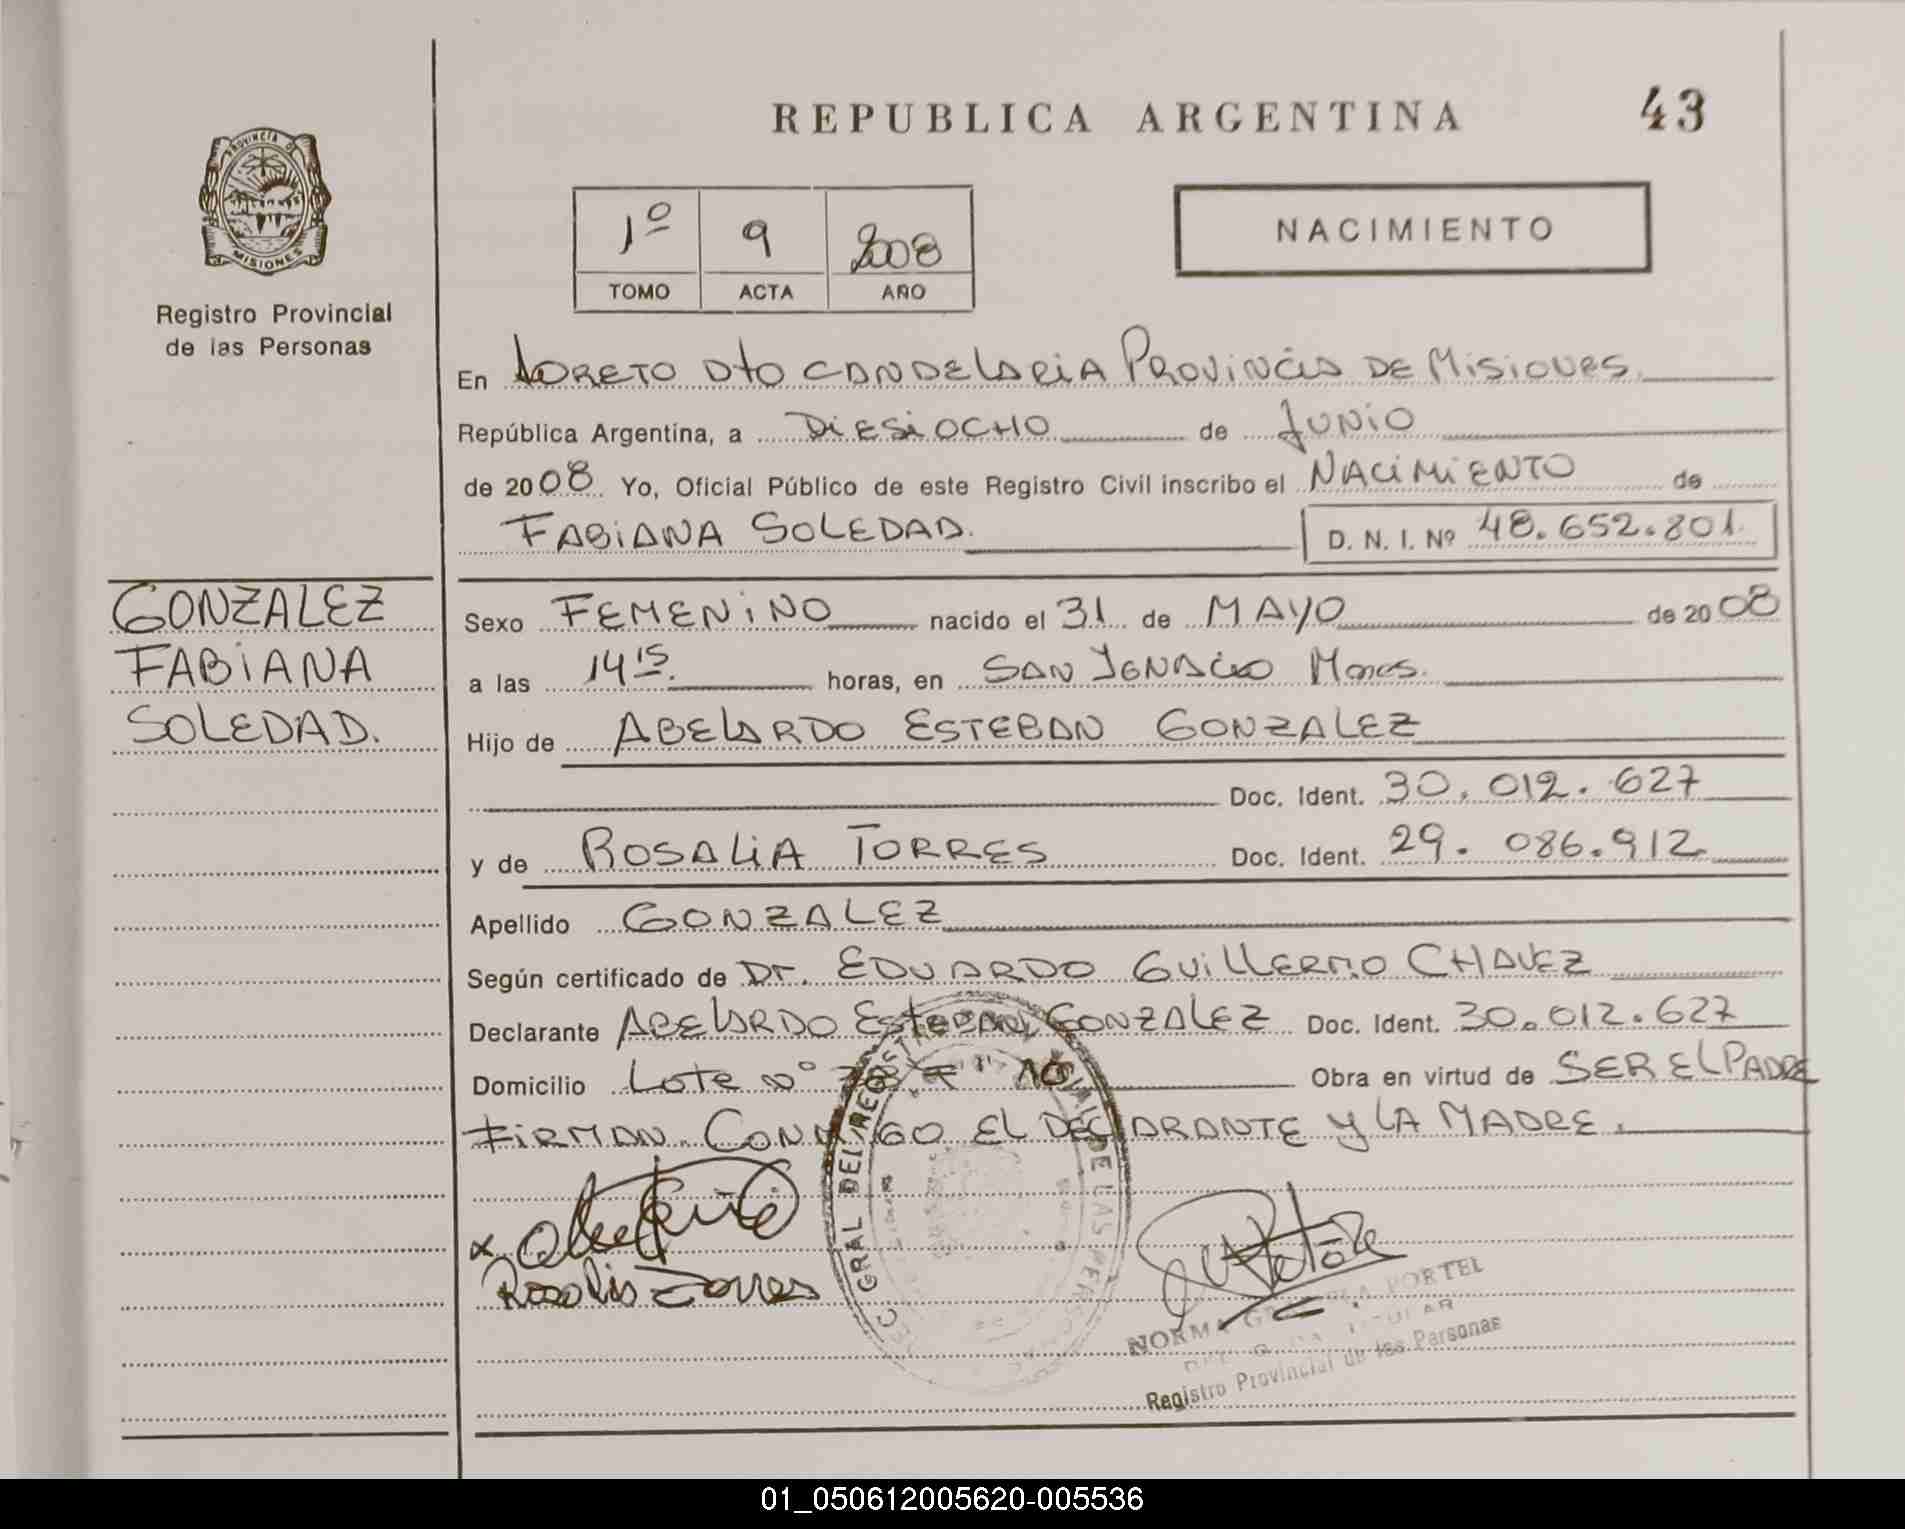 REPUBLICA ARGENTINA
43
PROVINCIA D
MISIONES
Registro Provincial
de las Personas
1º 9 2008
TOMO ACTA AÑO
NACIMIENTO
En LORETO Dto CANDELARIA PROVINCIA DE MISIONES.
República Argentina, a DIESIOCHO de JUNIO
de 2008. Yo, Oficial Público de este Registro Civil inscribo el NACIMIENTO de
FABIANA SOLEDAD. D. N. I. Nº 48.652.801.
GONZALEZ
FABIANA
SOLEDAD.
Sexo FEMENINO nacido el 31 de MAYO de 2008
a las 14 15. horas, en SAN IGNACIO Mnes.
Hijo de ABELARDO ESTEBAN GONZALEZ
Doc. Ident. 30.012.627
y de ROSALIA TORRES Doc. Ident. 29.086.912
Apellido GONZALEZ
Según certificado de Dr. EDUARDO GUILLERMO CHAVEZ
Declarante ABELARDO ESTEBAN GONZALEZ Doc. Ident. 30.012.627
Domicilio Lote Nº Obra en virtud de SER EL PADRE
FIRMAN CONMIGO EL DECLARANTE Y LA MADRE.
Rosalia Torres
GRAL DEL REGISTRO DE LAS PERSONAS
NORMA PORTEL
TITULAR
Registro Provincial de las Personas
01_050612005620-005536